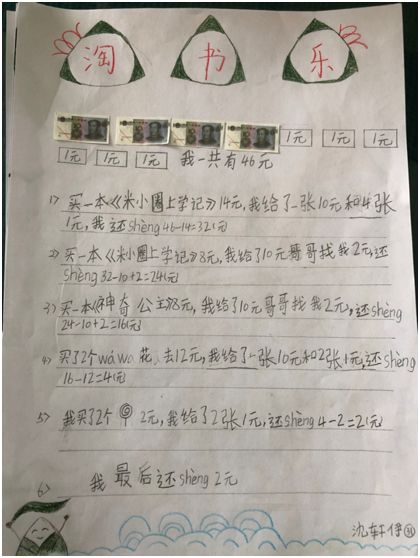 淘 书 乐
1元 1元 1元
1元 1元 1元 我一共有46元
1) 买一本《米小圈上学记》14元,我给了一张10元和4张
1元,我还shèng 46-14=32(元)
2) 买一本《米小圈上学记》8元,我给了10元哥哥找我2元,还
shèng 32-10+2=24(元)
3) 买一本《神奇公主》8元,我给了10元哥哥找我2元,还shèng
24-10+2=16(元)
4) 买了2个wá wa 花去12元,我给了一张10元和2张1元,还shèng
16-12=4(元)
5) 我买了2个 2元,我给了2张1元,还shèng 4-2=2(元)
6) 我最后还shèng 2元
沈轩伊